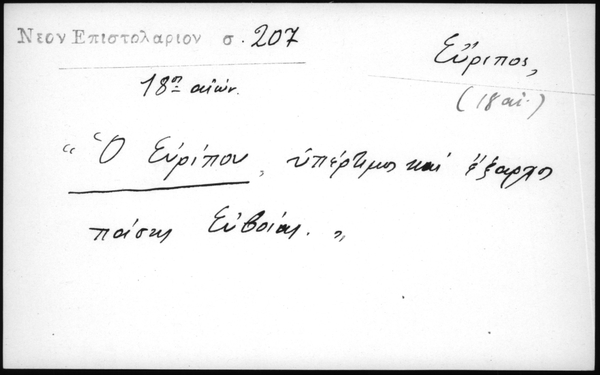 Νεον Επιστολαριον σ. 207
Εὔριπος,
18ης αἰών.
(18 αἰ.)
“Ὁ Εὐρίπου, ὑπέρτιμος καὶ ἔξαρχος
πάσης Εὐβοίας.„